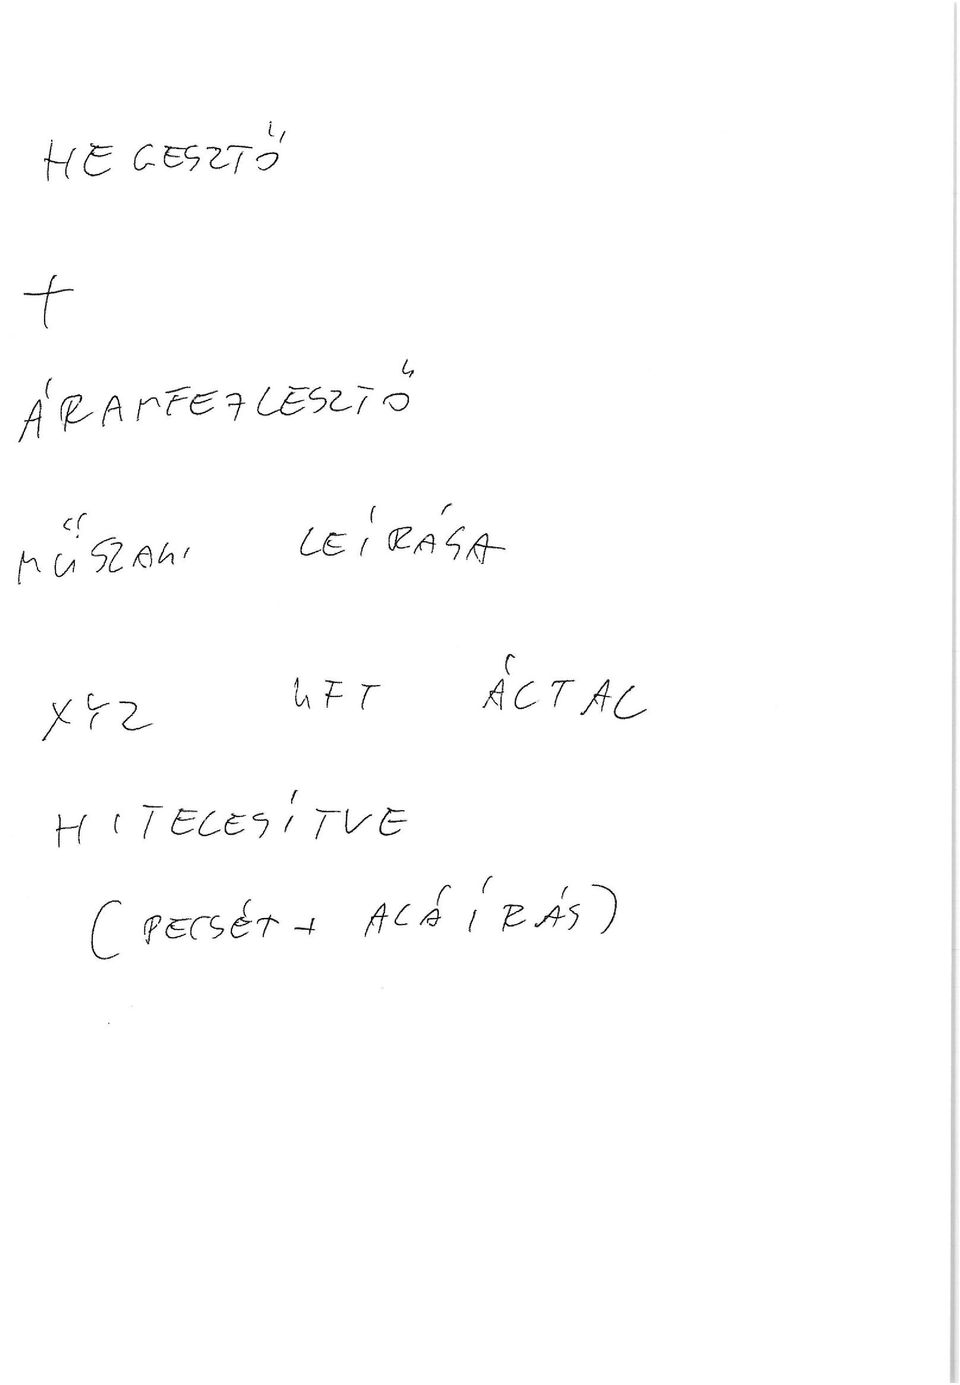 HEGESZTŐ
+
ÁRAMFEJLESZTŐ
MŰSZAKI LEÍRÁSA
XYZ KFT ÁLTAL
HITELESÍTVE
(PECSÉT + ALÁÍRÁS)